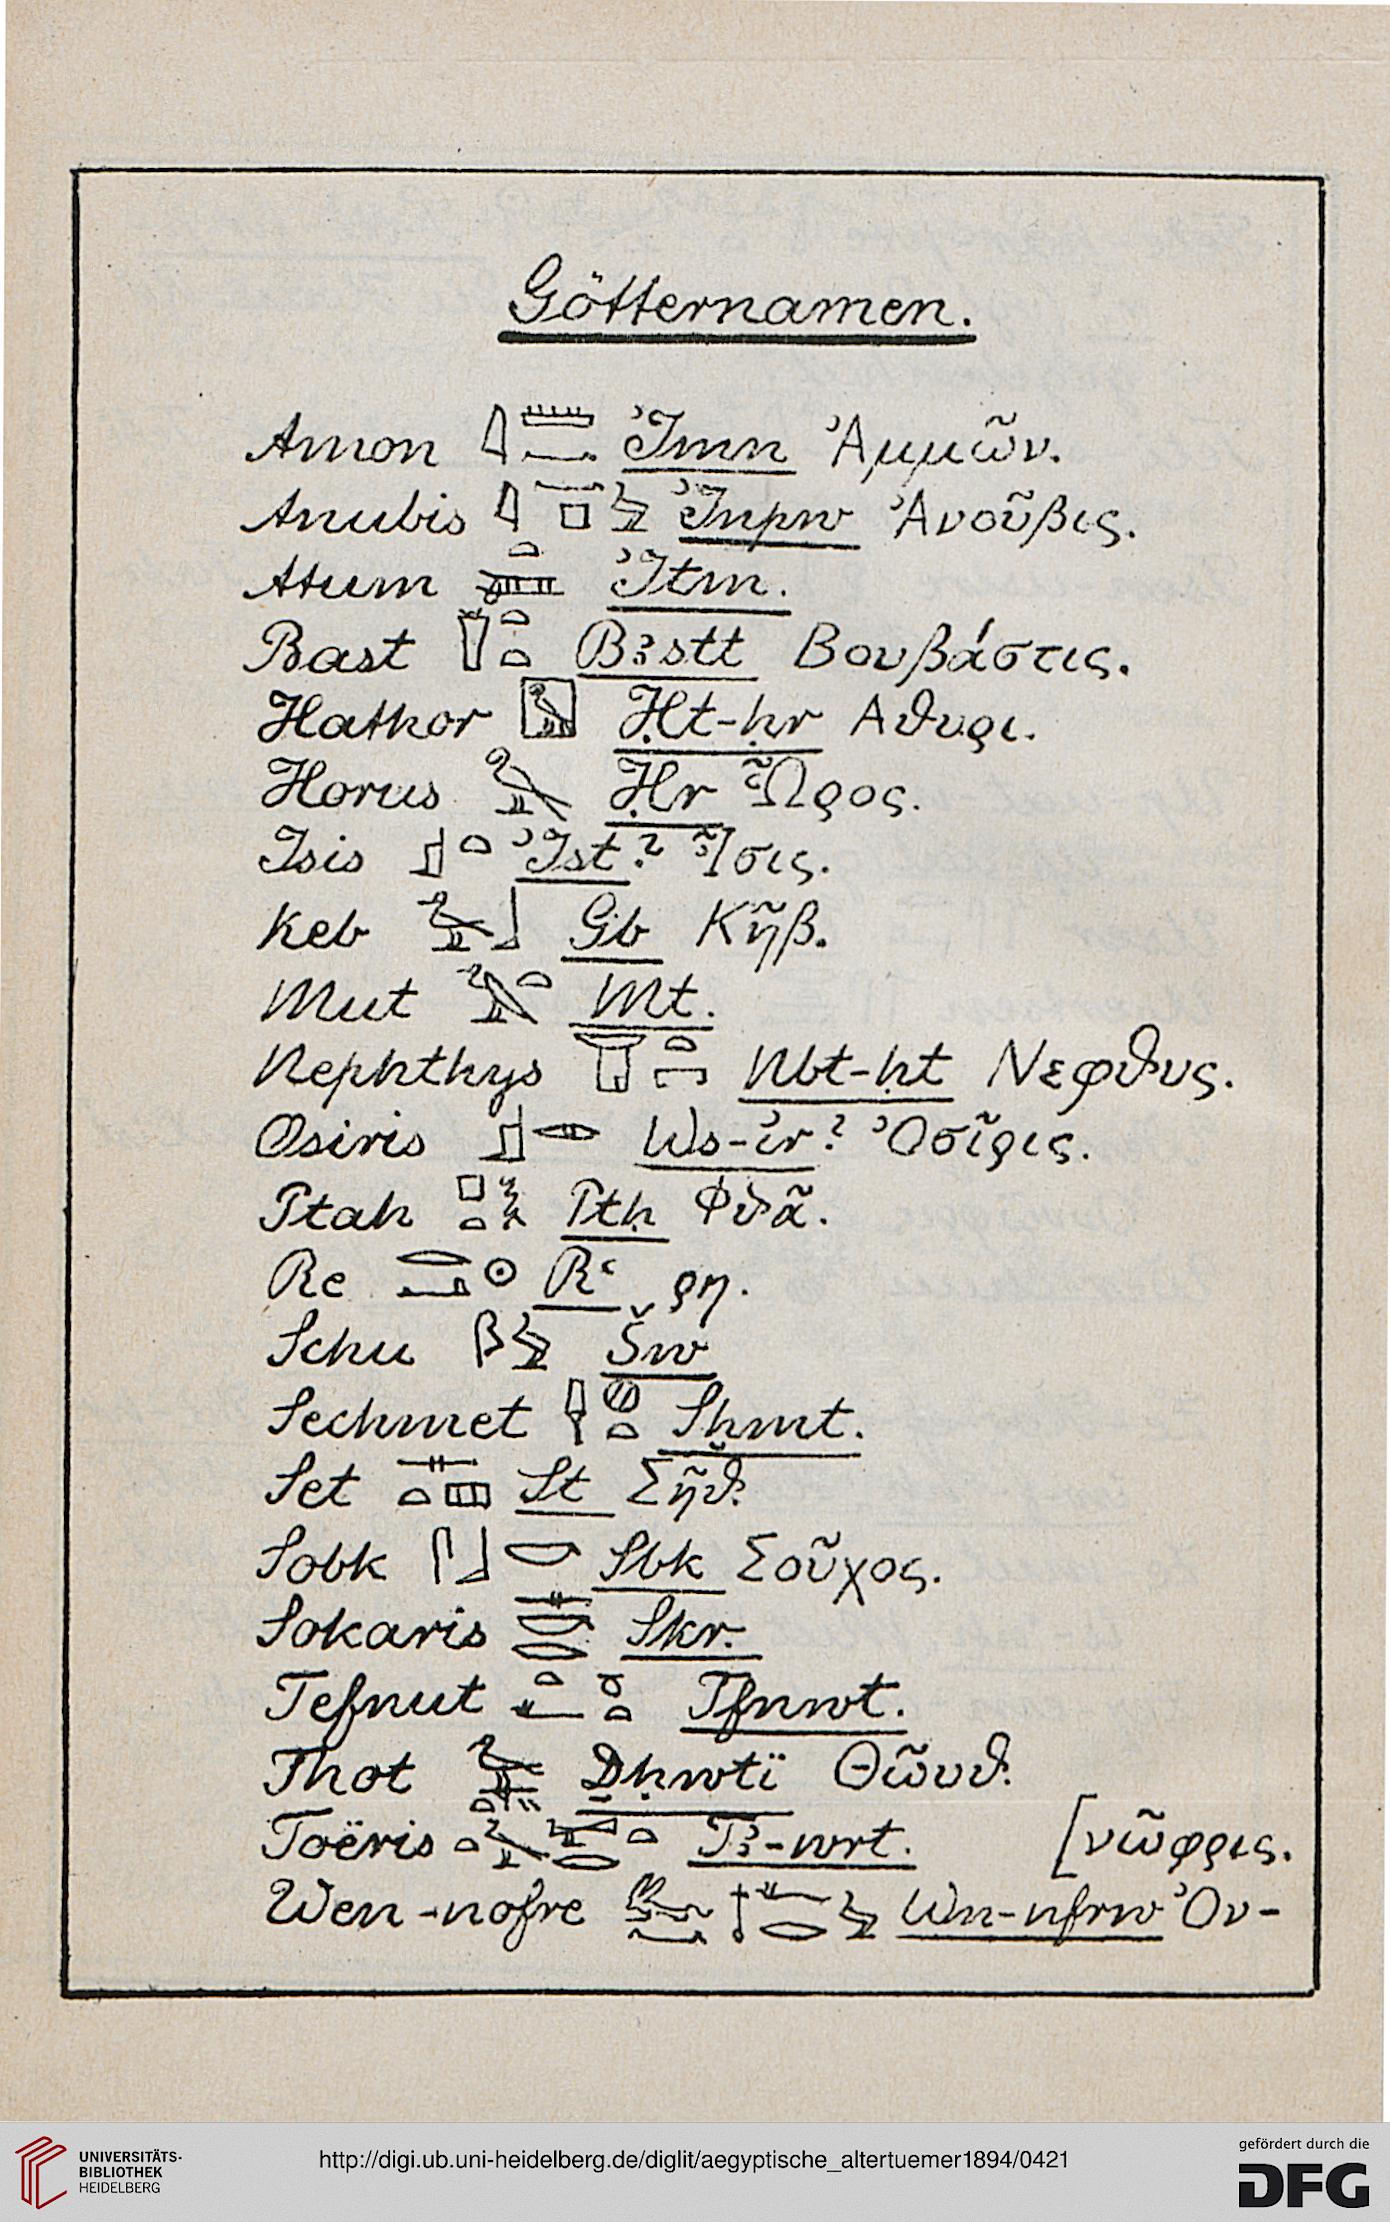 Götternamen.
Amon 𓇋𓏠𓈖 ꜣImn Ἀμμῶν.
Anubis 𓇋𓈖𓊪𓅱 ꜣInpw Ἀνοῦβις.
Atum 𓏏𓍃 ꜣItm.
Bast 𓎯𓏏𓏏 Bꜣstt Βουβάστις.
Hathor 𓉡 Ḥt-ḥr Αθυρι.
Horus 𓅃 Ḥr Ὧρος.
Isis 𓊨𓏏 ꜣIst? Ἶσις.
Keb 𓅬𓃀 Gb Κῆβ.
Mut 𓅐𓏏 Mt.
Nephthys 𓉠𓏏𓉐 Nbt-ḥt Νεφθυς.
Osiris 𓊨𓁹 Ws-ꜣir? Ὀσῖρις.
Ptah 𓊪𓏏𓎛 Ptḥ Φθᾶ.
Re 𓂋𓂝𓇳 Rꜥ ρη.
Schu 𓆄𓅱 Šw
Sechmet 𓌂𓐍𓏏 Sḫmt.
Set 𓊃𓏏𓈙 St Σῆθ.
Sobk 𓋴𓃀𓎡 Sbk Σοῦχος.
Sokaris 𓊃𓎡𓂋 Skr.
Tefnut 𓏏𓆑𓏌𓏏 Tfnwt.
Thot 𓅝𓏏𓏭 Ḏḥwtï Θῶυθ.
Toëris 𓏏𓄿𓅨𓂋𓏏 Tꜣ-wrt. [νῶφρις.
Wen-nofre 𓃹𓈖 𓄤𓆑𓂋𓅱 Wn-nfrw Ὀν-
UNIVERSITÄTS-
BIBLIOTHEK
HEIDELBERG
http://digi.ub.uni-heidelberg.de/diglit/aegyptische_altertuemer1894/0421
gefördert durch die
DFG